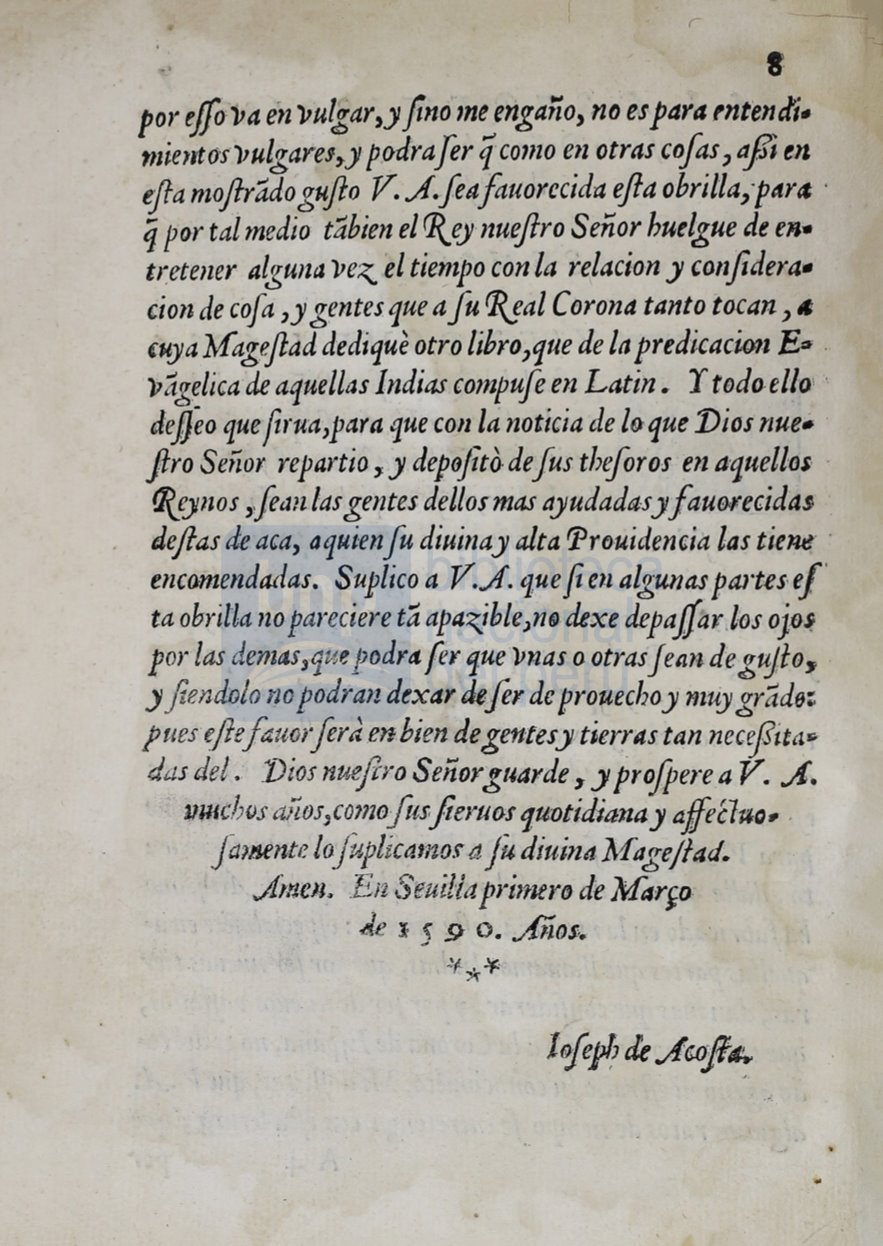 8
por eſſo va en vulgar, y ſino me engaño, no es para entendi-
mientos vulgares, y podra ſer q̃ como en otras coſas, aſsi en
eſta moſtrãdo guſto V. A. ſea fauorecida eſta obrilla, para
q̃ por tal medio tãbien el Rey nueſtro Señor huelgue de en-
tretener alguna vez el tiempo con la relacion y conſidera-
cion de coſa, y gentes que a ſu Real Corona tanto tocan, a
cuya Mageſtad dediquè otro libro, que de la predicacion E-
vãgelica de aquellas Indias compuſe en Latin. Y todo ello
deſſeo que ſirua, para que con la noticia de lo que Dios nue-
ſtro Señor repartio, y depoſitò de ſus theſoros en aquellos
Reynos, ſean las gentes dellos mas ayudadas y fauorecidas
deſtas de aca, a quien ſu diuina y alta Prouidencia las tiene
encomendadas. Suplico a V. A. que ſi en algunas partes eſ
ta obrilla no pareciere tã apazible, no dexe de paſſar los ojos
por las demas, que podra ſer que vnas o otras ſean de guſto,
y ſiendolo no podran dexar de ſer de prouecho y muy grãde:
pues eſte fauor ſerà en bien de gentes y tierras tan neceſsita-
das del. Dios nueſtro Señor guarde, y proſpere a V. A.
muchos años, como ſus ſieruos quotidiana y affectuo-
ſamente lo ſuplicamos a ſu diuina Mageſtad.
Amen. En Seuilla primero de Março
de 1590. Años.
***
Ioſeph de Acoſta.